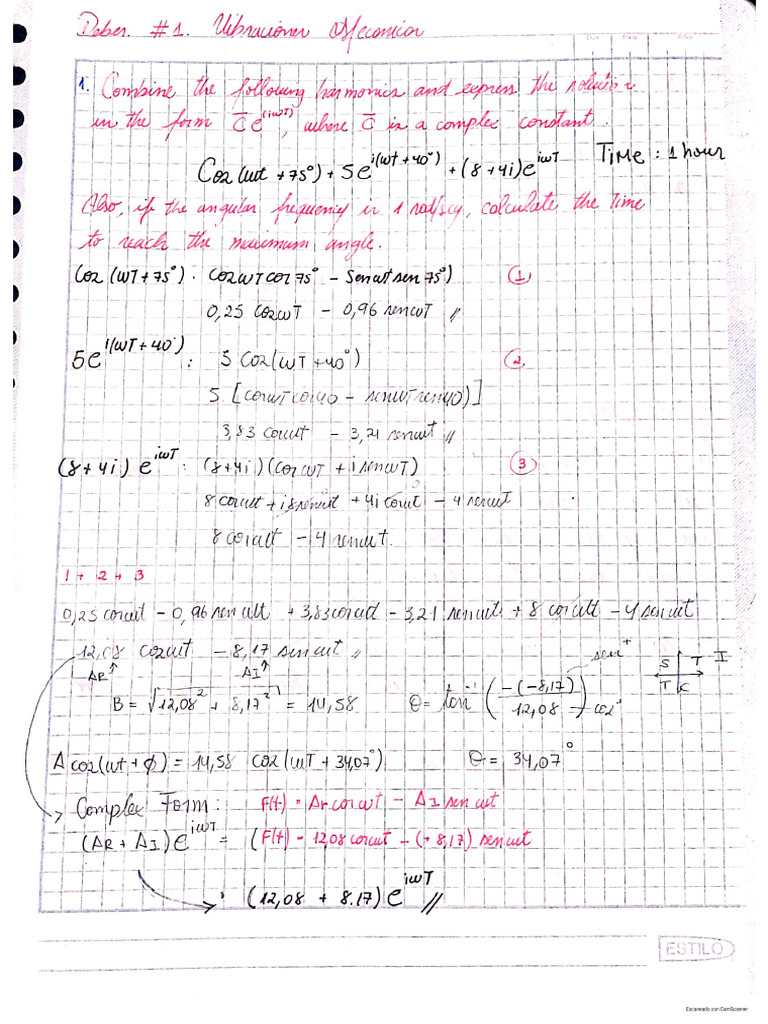 Deber #1. Vibraciones Mecanica
Día Mes Año
1. Combine the following harmonics and express the solution
in the form C̅e^(iωT), where C̅ is a complex constant.
Cos(ωt + 75°) + 5e^i(ωt + 40°) + (8 + 4i)e^iωT Time : 1 hour
Also, if the angular frequency is 1 rad/seg, calculate the Time
to reach the maximum angle.
Cos(ωT + 75°) : cosωT cos75° - senωt sen75°) (1)
0,25 cosωT - 0,96 senωT //
5e^i(ωT + 40°) : 5 cos(ωT + 40°) (2)
5 [cosωT cos40 - senωT sen40)]
3,83 cosωt - 3,21 senωt //
(8 + 4i) e^iωT : (8 + 4i)(cosωT + i senωT) (3)
8 cosωt + i8senωt + 4i cosωt - 4 senωt
8 cosωt - 4 senωt.
1 + 2 + 3
0,25 cosωt - 0,96 senωt + 3,83cosωt - 3,21 senωt + 8 cosωt - 4 senωt
12,08 cosωt - 8,17 senωt //
AR↑ AI↑ sen+ S T I
T K
B = √(12,08² + 8,17²) = 14,58 θ = tan⁻¹ (-(-8,17) / 12,08) cos+
A cos(ωt + ϕ) = 14,58 cos(ωT + 34,07°) θ = 34,07°
→ Complex Form: F(t) = Ar cosωt - AI senωt
(AR + AI)e^iωT = (F(t) = 12,08 cosωt - (+ 8,17) senωt
→ (12,08 + 8.17) e^iωT //
ESTILO
Escaneado con CamScanner